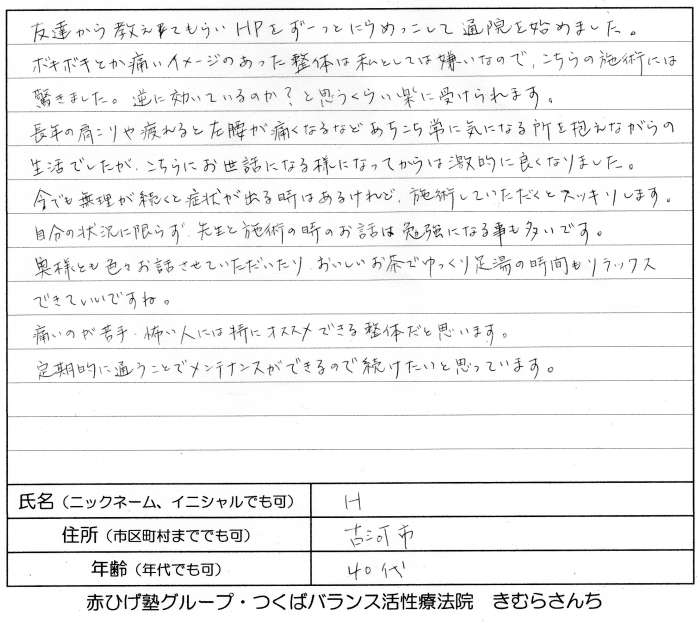 友達から教えてもらい HPをずーっとにらめっこして通院を始めました。
ボキボキとか痛いイメージのあった整体は私としては嫌いなので、こちらの施術には
驚きました。逆に効いているのか?と思うくらい楽に受けられます。
長年の肩こりや疲れると左腰が痛くなるなどあちこち常に気になる所を抱えながらの
生活でしたが、こちらにお世話になる様になってからは激的に良くなりました。
今でも無理が続くと症状が出る時はあるけれど、施術していただくとスッキリします。
自分の状況に限らず、先生と施術の時のお話は勉強になる事も多いです。
奥様とも色々お話させていただいたり、おいしいお茶でゆっくり足湯の時間もリラックス
できていいですね。
痛いのが苦手・怖い人には特にオススメできる整体だと思います。
定期的に通うことでメンテナンスができるので続けたいと思っています。
氏名(ニックネーム、イニシャルでも可) H
住所(市区町村まででも可) 古河市
年齢(年代でも可) 40代
赤ひげ塾グループ・つくばバランス活性療法院 きむらさんち